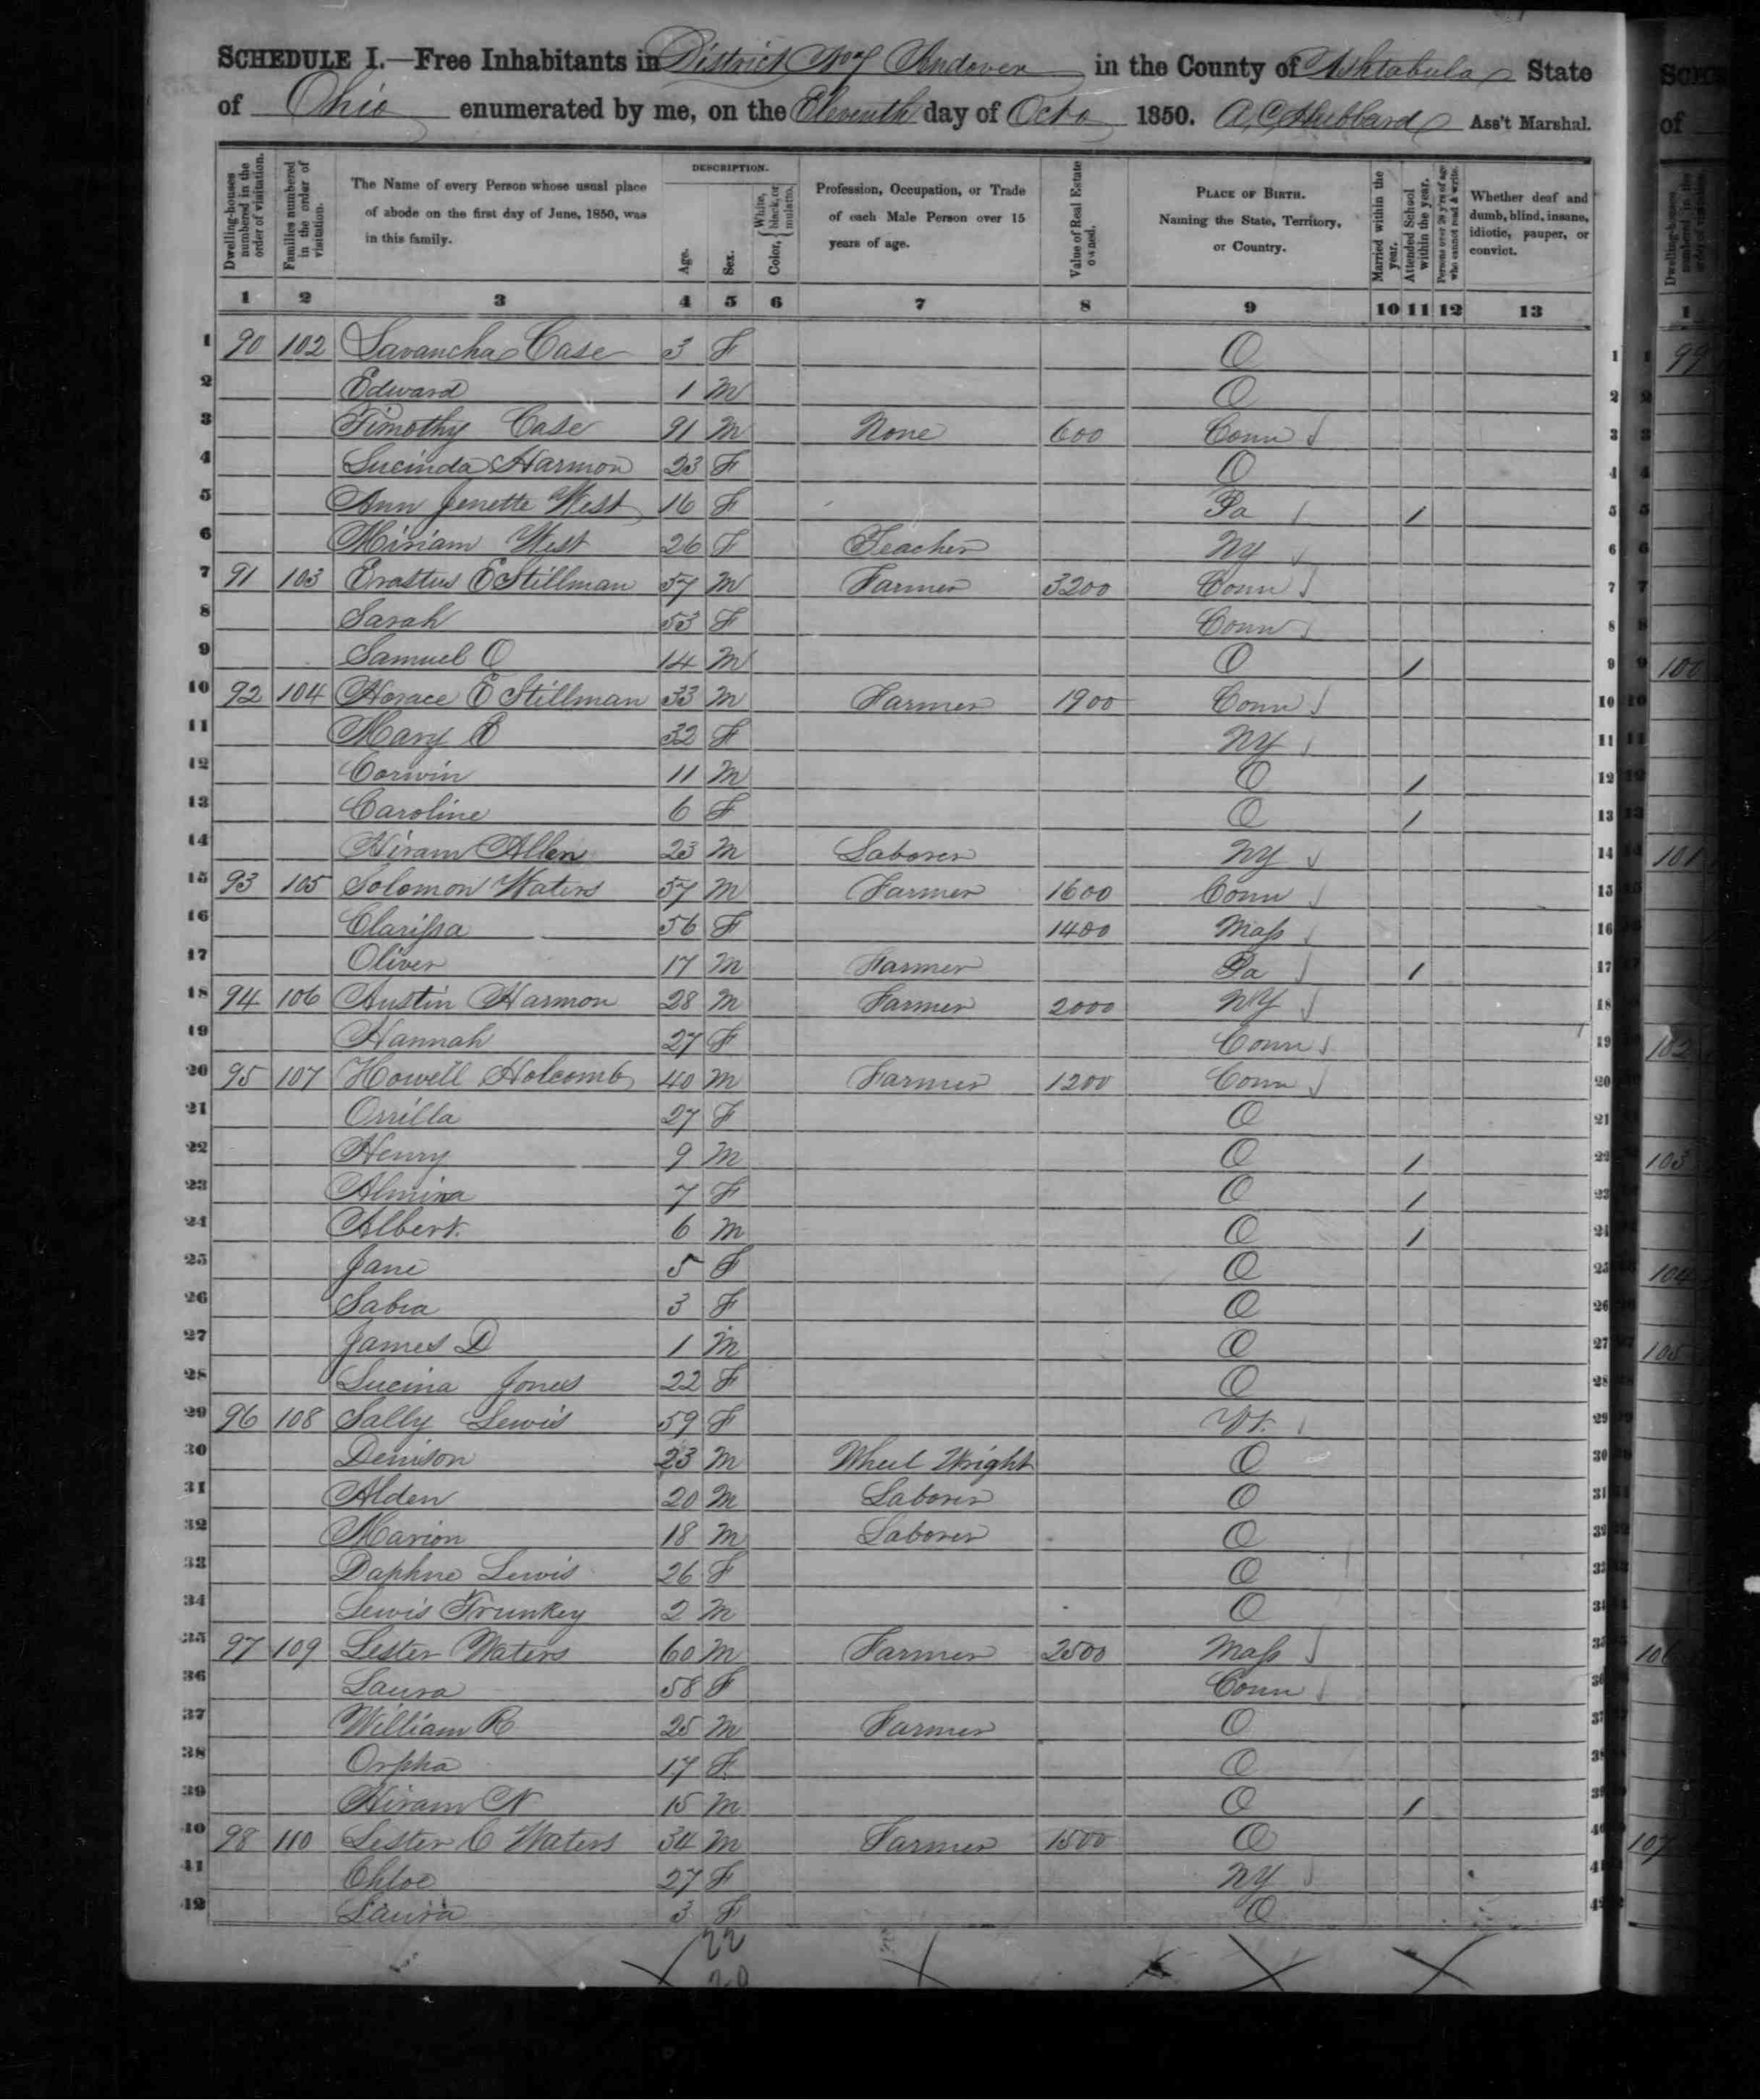 SCHEDULE I.—Free Inhabitants in District No 7 Andover in the County of Ashtabula State
of Ohio enumerated by me, on the Eleventh day of Octo 1850. A. C. Hubbard Ass't Marshal.
Dwelling-houses numbered in the order of visitation.
Families numbered in the order of visitation.
The Name of every Person whose usual place of abode on the first day of June, 1850, was in this family.
DESCRIPTION.
Age.
Sex.
Color, { White, black, or mulatto.
Profession, Occupation, or Trade of each Male Person over 15 years of age.
Value of Real Estate owned.
PLACE OF BIRTH. Naming the State, Territory, or Country.
Married within the year.
Attended School within the year.
Persons over 20 y'rs of age who cannot read & write.
Whether deaf and dumb, blind, insane, idiotic, pauper, or convict.
1 2 3 4 5 6 7 8 9 10 11 12 13
1 90 102 Savancha Case 3 F O 1
2 Edward 1 M O 2
3 Timothy Case 91 M None 600 Conn 3
4 Lucinda Harmon 23 F O 4
5 Ann Jenette West 16 F Pa / 5
6 Miriam West 26 F Teacher NY 6
7 91 103 Erastus E Stillman 57 M Farmer 3200 Conn 7
8 Sarah 53 F Conn 8
9 Samuel O 14 M O / 9
10 92 104 Horace E Stillman 33 M Farmer 1900 Conn 10
11 Mary E 32 F NY 11
12 Corwin 11 M O / 12
13 Caroline 6 F O / 13
14 Hiram Allen 23 M Laborer NY 14
15 93 105 Solomon Waters 57 M Farmer 1600 Conn 15
16 Clarissa 56 F 1400 Mass 16
17 Oliver 17 M Farmer Pa / 17
18 94 106 Austin Harmon 28 M Farmer 2000 NY 18
19 Hannah 27 F Conn 19
20 95 107 Howell Holcomb 40 M Farmer 1200 Conn 20
21 Orrilla 27 F O 21
22 Henry 9 M O / 22
23 Almira 7 F O / 23
24 Albert 6 M O / 24
25 Jane 5 F O 25
26 Sabra 3 F O 26
27 James D 1 M O 27
28 Lucina Jones 22 F O 28
29 96 108 Sally Lewis 59 F Vt. 29
30 Denison 23 M Wheel Wright O 30
31 Alden 20 M Laborer O 31
32 Marion 18 M Laborer O 32
33 Daphne Lewis 26 F O 33
34 Lewis Trunkey 2 M O 34
35 97 109 Lester Waters 60 M Farmer 2500 Mass 35
36 Laura 58 F Conn 36
37 William R 25 M Farmer O 37
38 Orpha 17 F O 38
39 Hiram N 15 M O / 39
40 98 110 Lester C Waters 34 M Farmer 1500 O 40
41 Chloe 27 F NY 41
42 Laura 3 F O 42
22
20
99
100
101
102
103
104
105
106
107